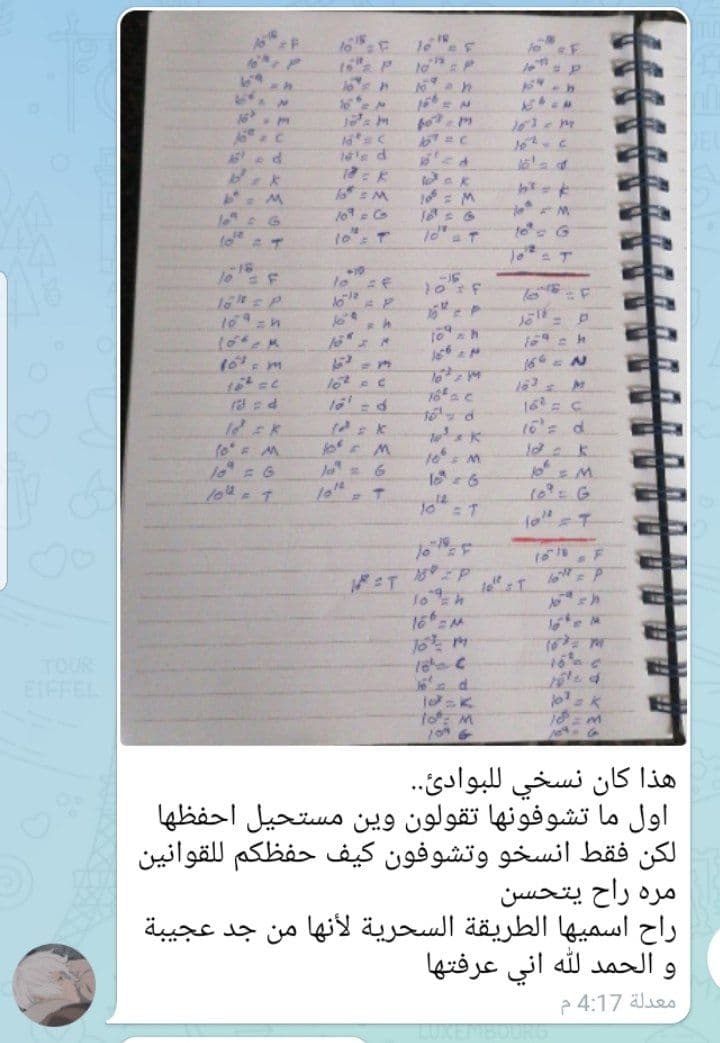 10⁻¹⁵ = F
10⁻¹² = P
10⁻⁹ = n
10⁻⁶ = M
10⁻³ = m
10⁻² = c
10⁻¹ = d
10³ = K
10⁶ = M
10⁹ = G
10¹² = T
10⁻¹⁵ = F
10⁻¹² = P
10⁻⁹ = n
10⁻⁶ = M
10⁻³ = m
10⁻² = c
10⁻¹ = d
10³ = K
10⁶ = M
10⁹ = G
10¹² = T
10⁻¹⁵ = F
10⁻¹² = P
10⁻⁹ = n
10⁻⁶ = M
10⁻³ = m
10⁻² = c
10⁻¹ = d
10³ = K
10⁶ = M
10⁹ = G
10¹² = T
10⁻¹⁵ = F
10⁻¹² = P
10⁻⁹ = n
10⁻⁶ = M
10⁻³ = m
10⁻² = c
10⁻¹ = d
10³ = K
10⁶ = M
10⁹ = G
10¹² = T
10⁻¹⁵ = F
10⁻¹² = P
10⁻⁹ = n
10⁻⁶ = M
10⁻³ = m
10⁻² = c
10⁻¹ = d
10³ = K
10⁶ = M
10⁹ = G
10¹² = T
10⁻¹⁵ = F
10⁻¹² = P
10⁻⁹ = n
10⁻⁶ = M
10⁻³ = m
10⁻² = c
10⁻¹ = d
10³ = K
10⁶ = M
10⁹ = G
10¹² = T
10⁻¹⁵ = F
10⁻¹² = P
10⁻⁹ = n
10⁻⁶ = M
10⁻³ = m
10⁻² = c
10⁻¹ = d
10³ = K
10⁶ = M
10⁹ = G
10¹² = T
10⁻¹⁵ = F
10⁻¹² = P
10⁻⁹ = n
10⁻⁶ = M
10⁻³ = m
10⁻² = c
10⁻¹ = d
10³ = K
10⁶ = M
10⁹ = G
10¹² = T
10⁻¹⁵ = F
10⁻¹² = P
10⁻⁹ = n
10⁻⁶ = M
10⁻³ = m
10⁻² = c
10⁻¹ = d
10³ = K
10⁶ = M
10⁹ G
10¹² = T
10⁻¹⁵ = F
10⁻¹² = P
10⁻⁹ = n
10⁻⁶ = M
10⁻³ = m
10⁻² = c
10⁻¹ = d
10³ = K
10⁶ = M
10⁹ = G
10¹² = T
هذا كان نسخي للبوادئ..
اول ما تشوفونها تقولون وين مستحيل احفظها
لكن فقط انسخو وتشوفون كيف حفظكم للقوانين
مره راح يتحسن
راح اسميها الطريقة السحرية لأنها من جد عجيبة
و الحمد لله اني عرفتها
معدلة 4:17 م
TOUR
EIFFEL
LUXEMBOURG